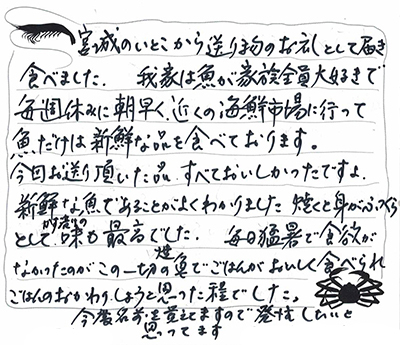 宮城のいとこから送り物のお礼として届き
食べました。 我家は魚が家族全員大好きで
毎週休みに朝早く、近くの海鮮市場に行って
魚だけは新鮮な品を食べております。
今回お送り頂いた品、すべておいしかったですよ。
新鮮な魚であることがよくわかりました 焼くと身がふっくら
として 味も最高でした。 毎日猛暑で食欲が
なかったのがこの一切の焼魚でごはんがおいしく食べられ
ごはんのおかわりしようと思った程でした。
今度名前を覚えてますので発注したいと
思ってます